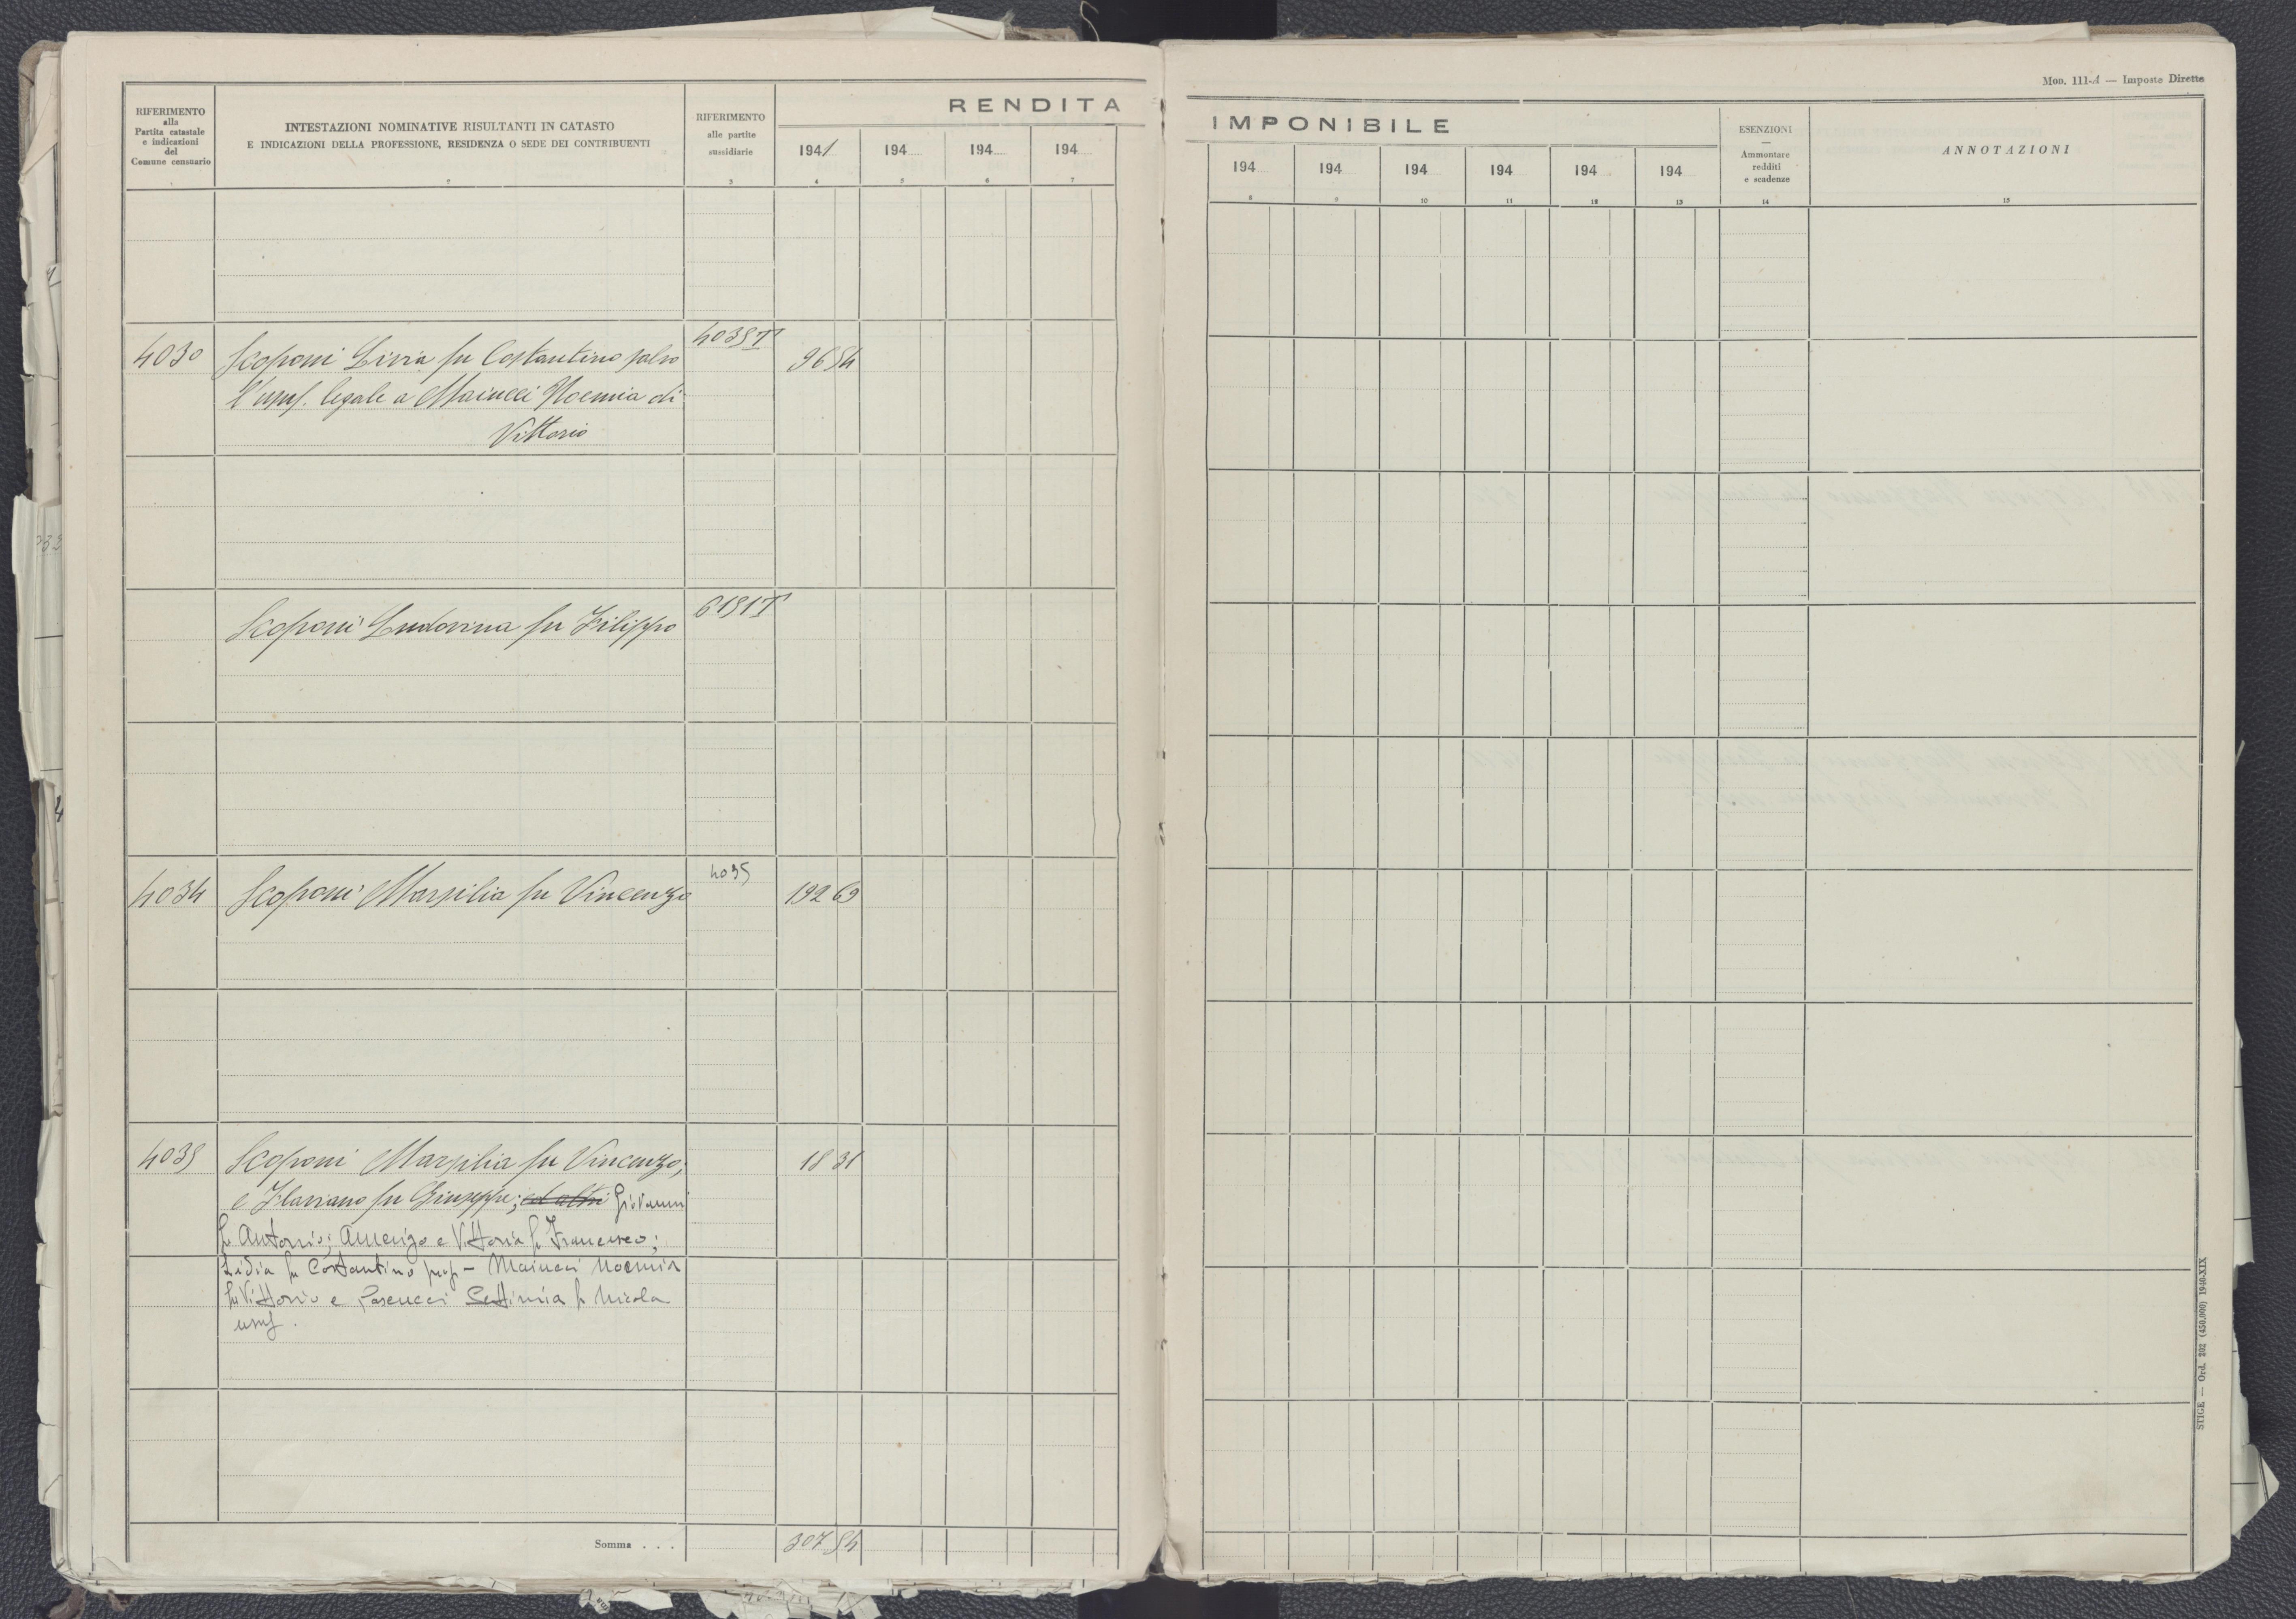 Mod. 111-A — Imposte Dirette
RIFERIMENTO
alla
Partita catastale
e indicazioni
del
Comune censuario
INTESTAZIONI NOMINATIVE RISULTANTI IN CATASTO
E INDICAZIONI DELLA PROFESSIONE, RESIDENZA O SEDE DEI CONTRIBUENTI
RIFERIMENTO
alle partite
sussidiarie
RENDITA
IMPONIBILE
1941 194 194 194
194 194 194 194 194 194
ESENZIONI
—
Ammontare
redditi
e scadenze
ANNOTAZIONI
2 3 4 5 6 7 8 9 10 11 12 13 14 15
4035 T
4030 Scoponi Livia fu Costantino salvo 96 54
l'usuf. legale a Maincci Noemia di
Vittorio
6191 T
Scoponi Ludovina fu Filippo
4035
4034 Scoponi Marsilia fu Vincenzo 192 69
4035 Scoponi Marsilia fu Vincenzo; 18 31
e Flaviano fu Giuseppe; ed altri Giovanni
fu Antonio; Amerigo e Vittoria fu Francesco;
Lidia fu Costantino prop – Maincci Noemia
fu Vittorio e Pascucci Settimia fu Nicola
usuf.
Somma . . . 307 54
STIGE — Ord. 202 (450.000) 1940-XIX